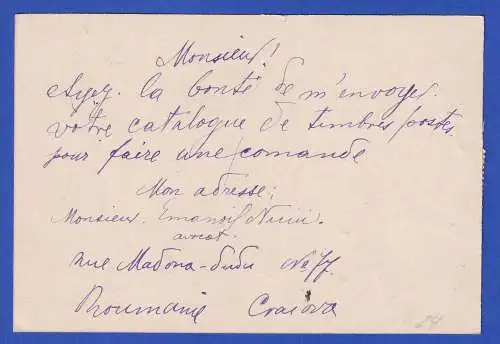 Monsieur!
Ayez la bonté de m'envoyer
votre catalogue de timbres postes
pour faire une comande
Mon adresse:
Monsieur Emanoil
avocat.
rue Madona-Dudu No
Roumanie Craiova
24